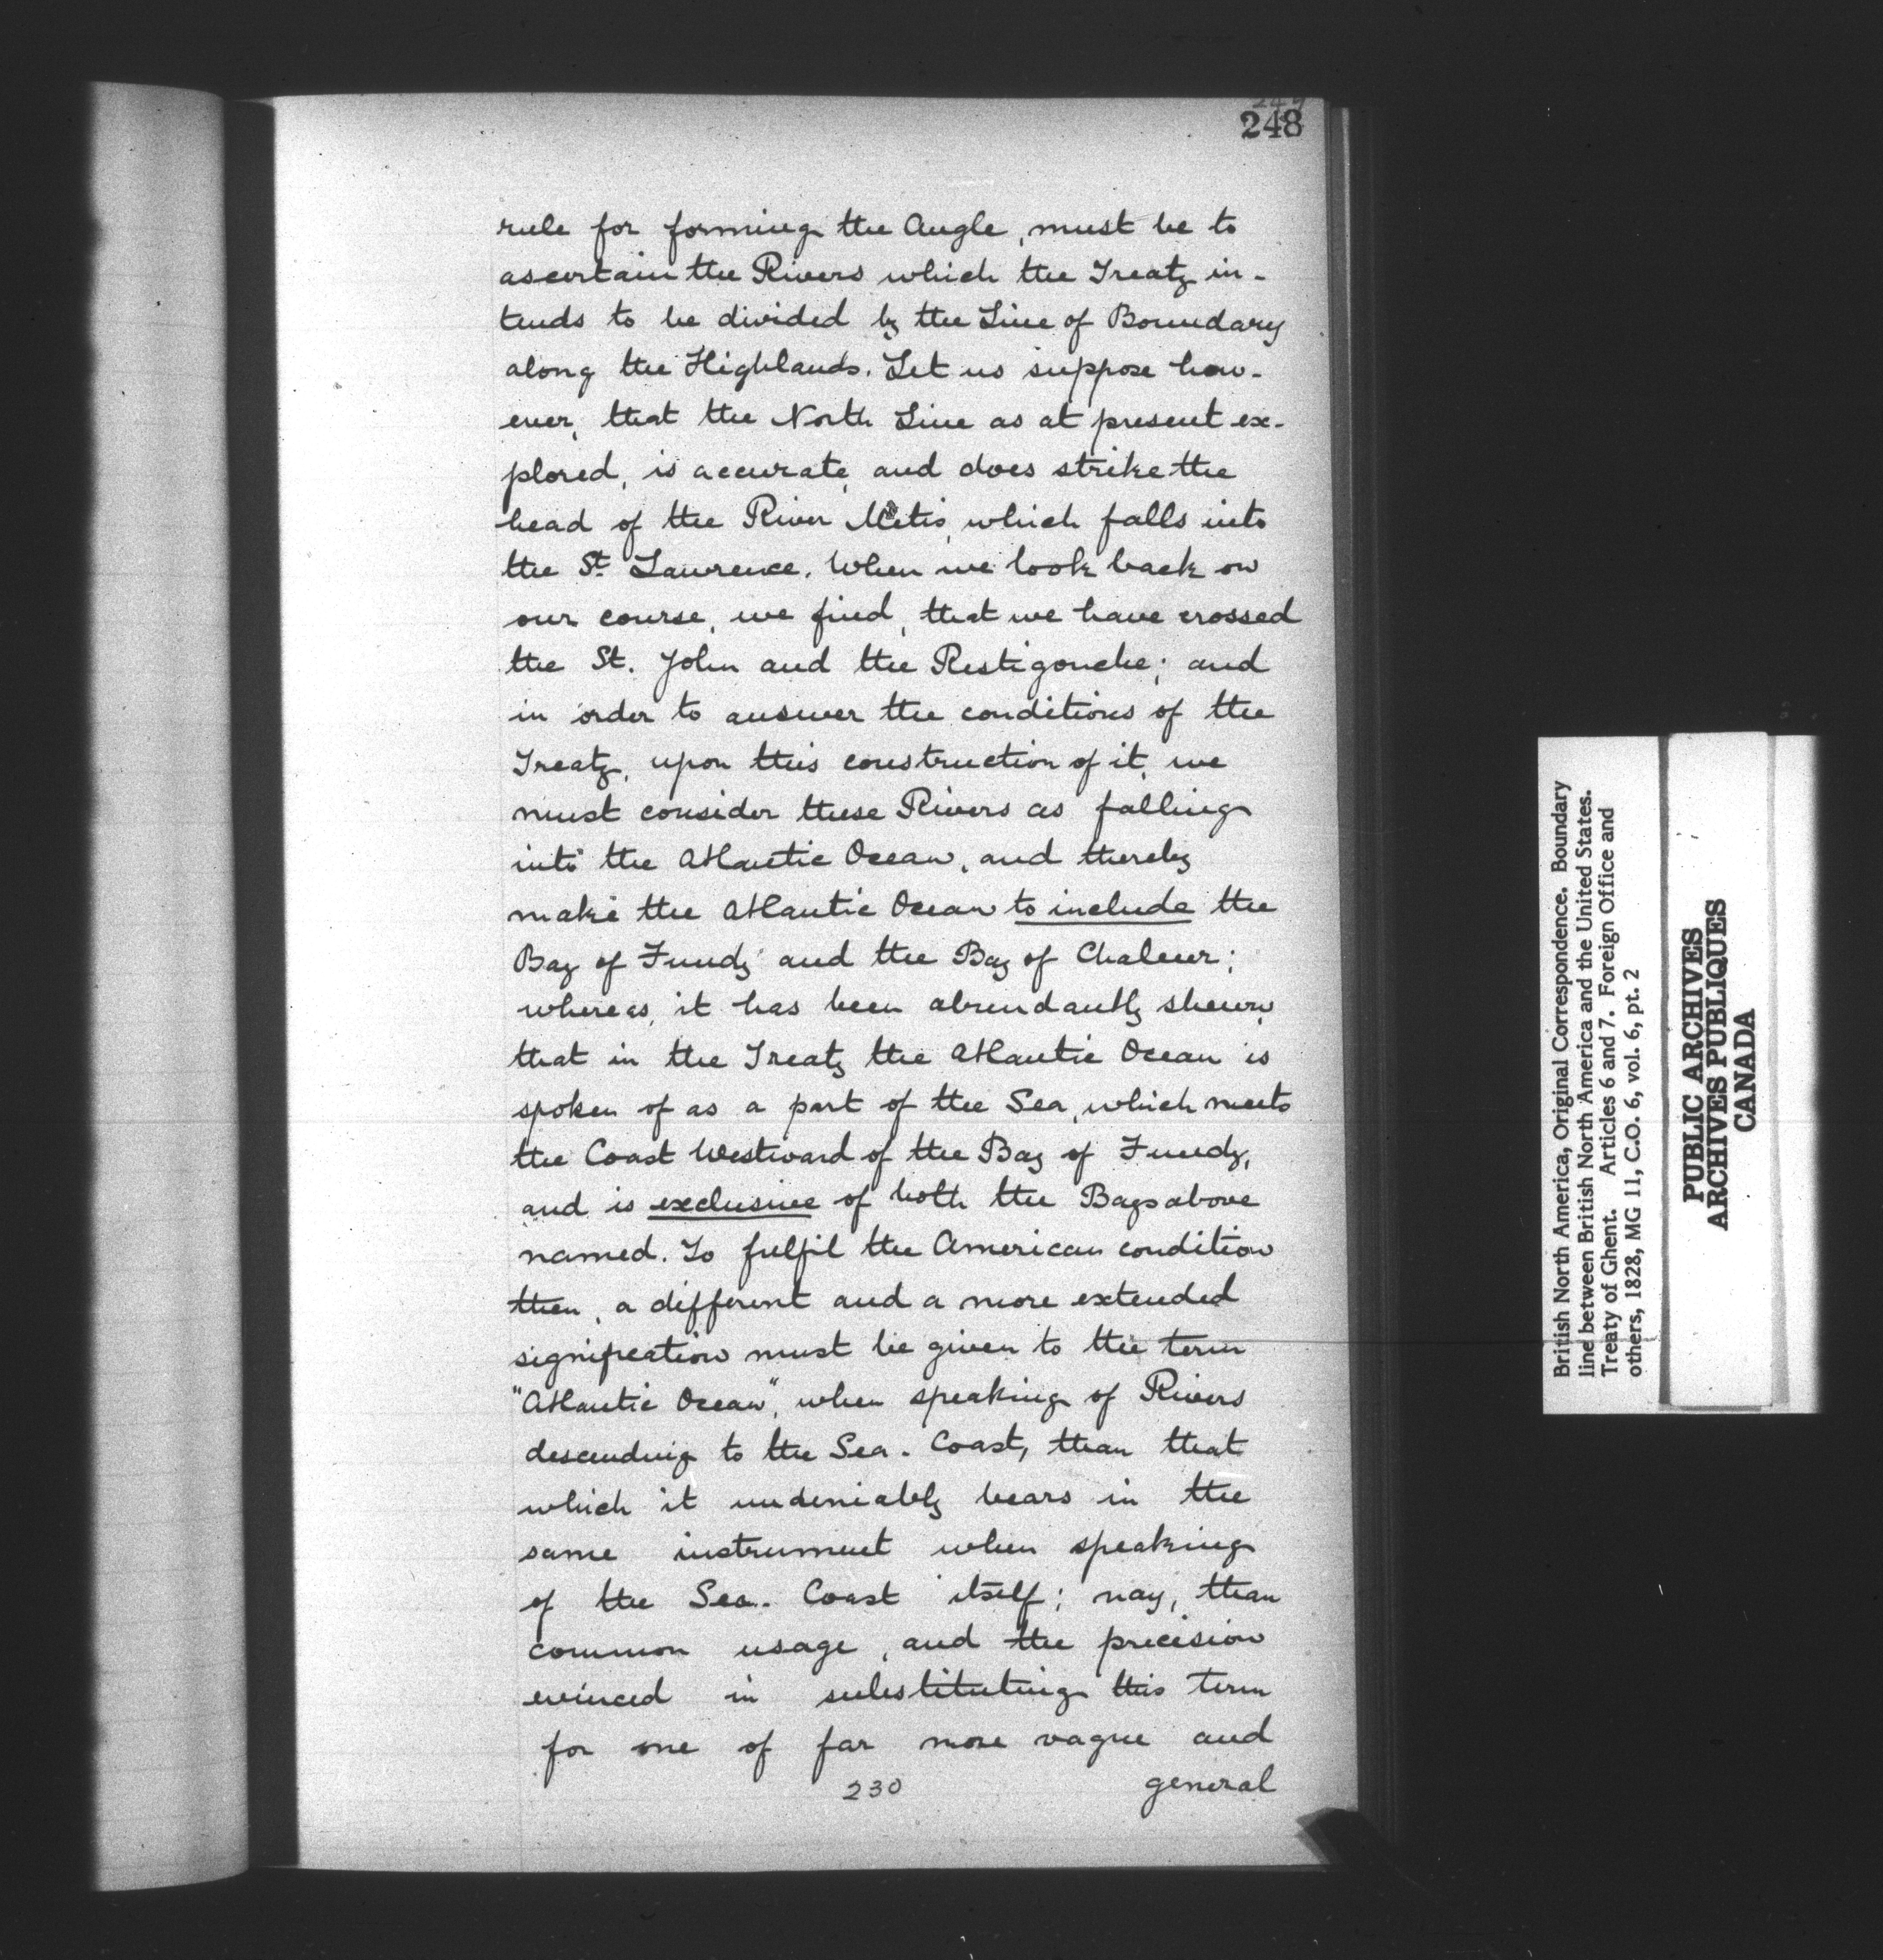 248
rule for forming the Angle, must be to
ascertain the Rivers which the Treaty in-
tends to be divided by the Line of Boundary
along the Highlands. Let us suppose how-
ever, that the North Line as at present ex-
plored, is accurate, and does strike the
head of the River Metis, which falls into
the St. Lawrence. When we look back on
our course, we find, that we have crossed
the St. John and the Restigouche; and
in order to answer the conditions of the
Treaty, upon this construction of it, we
must consider these Rivers as falling
into the Atlantic Ocean, and thereby
make the Atlantic Ocean to include the
Bay of Fundy and the Bay of Chaleur;
whereas, it has been abundantly shewn,
that in the Treaty the Atlantic Ocean is
spoken of as a part of the Sea, which meets
the Coast Westward of the Bay of Fundy,
and is exclusive of both the Bays above
named. To fulfil the American condition
then, a different and a more extended
signification must be given to the term
"Atlantic Ocean", when speaking of Rivers
descending to the Sea-Coast, than that
which it undeniably bears in the
same instrument when speaking
of the Sea-Coast itself; nay, than
common usage, and the precision
evinced in substituting this term
for one of far more vague and
230 general
British North America, Original Correspondence. Boundary
line between British North America and the United States.
Treaty of Ghent. Articles 6 and 7. Foreign Office and
others, 1828, MG 11, C.O. 6, vol. 6, pt. 2
PUBLIC ARCHIVES
ARCHIVES PUBLIQUES
CANADA